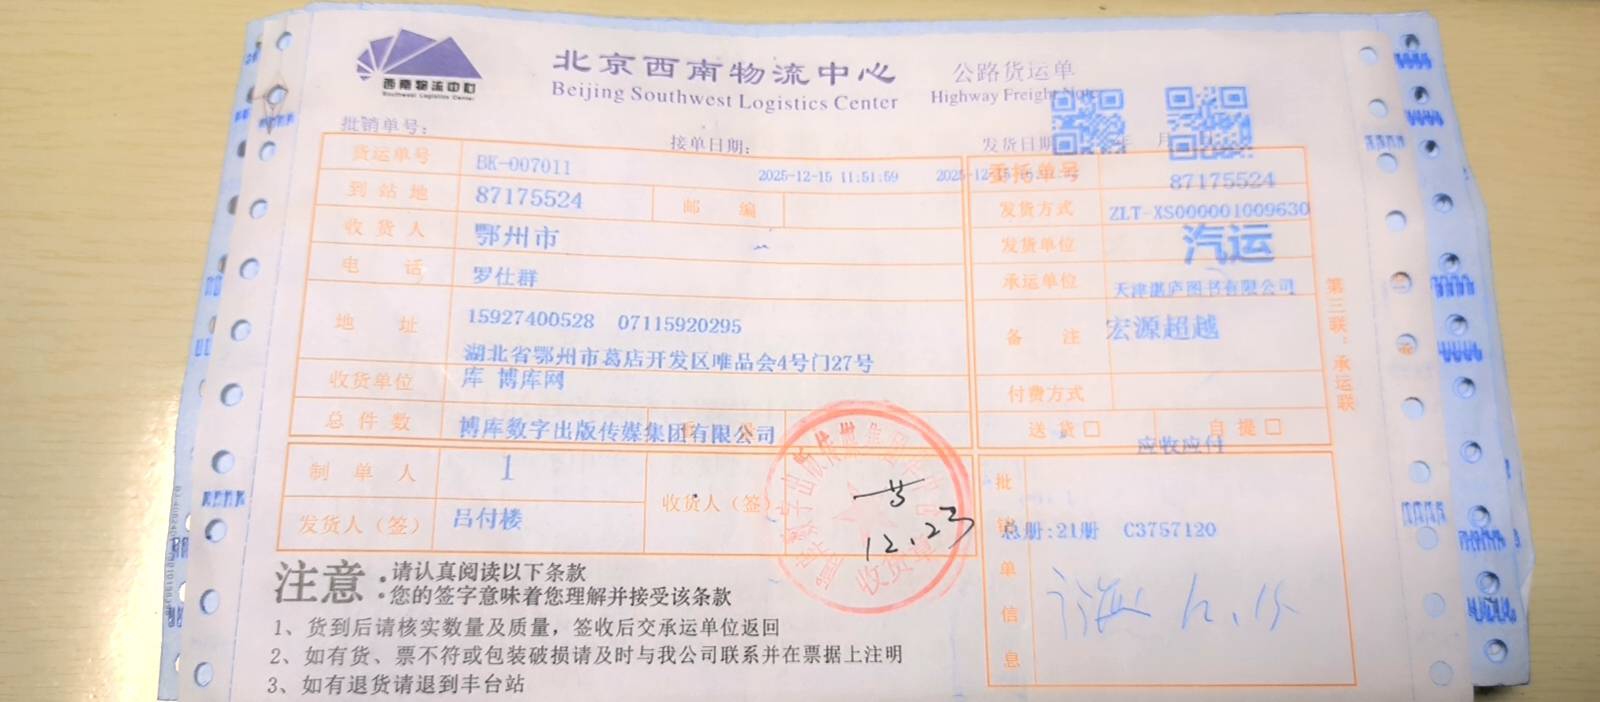 西南物流中心
Southwest Logistics Center
北京西南物流中心
Beijing Southwest Logistics Center
公路货运单
Highway Freight Note
批销单号：
接单日期：
发货日期
月
货运单号
BK-007011
2025-12-15 11:51:59
2025-12-15
委托单号
87175524
到站地
87175524
邮编
发货方式
ZLT-XS000001009630
收货人
鄂州市
发货单位
汽运
电话
罗仕群
承运单位
天津湛庐图书有限公司
地址
15927400528 07115920295
湖北省鄂州市葛店开发区唯品会4号门27号
库 博库网
备注
宏源超越
收货单位
付费方式
总件数
博库数字出版传媒集团有限公司
送货□
自提□
应收应付
制单人
1
收货人（签）
12.23
收货章
发货人（签）
吕付楼
批销单信息
总册:21册 C3757120
12.15
第三联：承运联
注意：
请认真阅读以下条款
您的签字意味着您理解并接受该条款
1、货到后请核实数量及质量，签收后交承运单位返回
2、如有货、票不符或包装破损请及时与我公司联系并在票据上注明
3、如有退货请退到丰台站